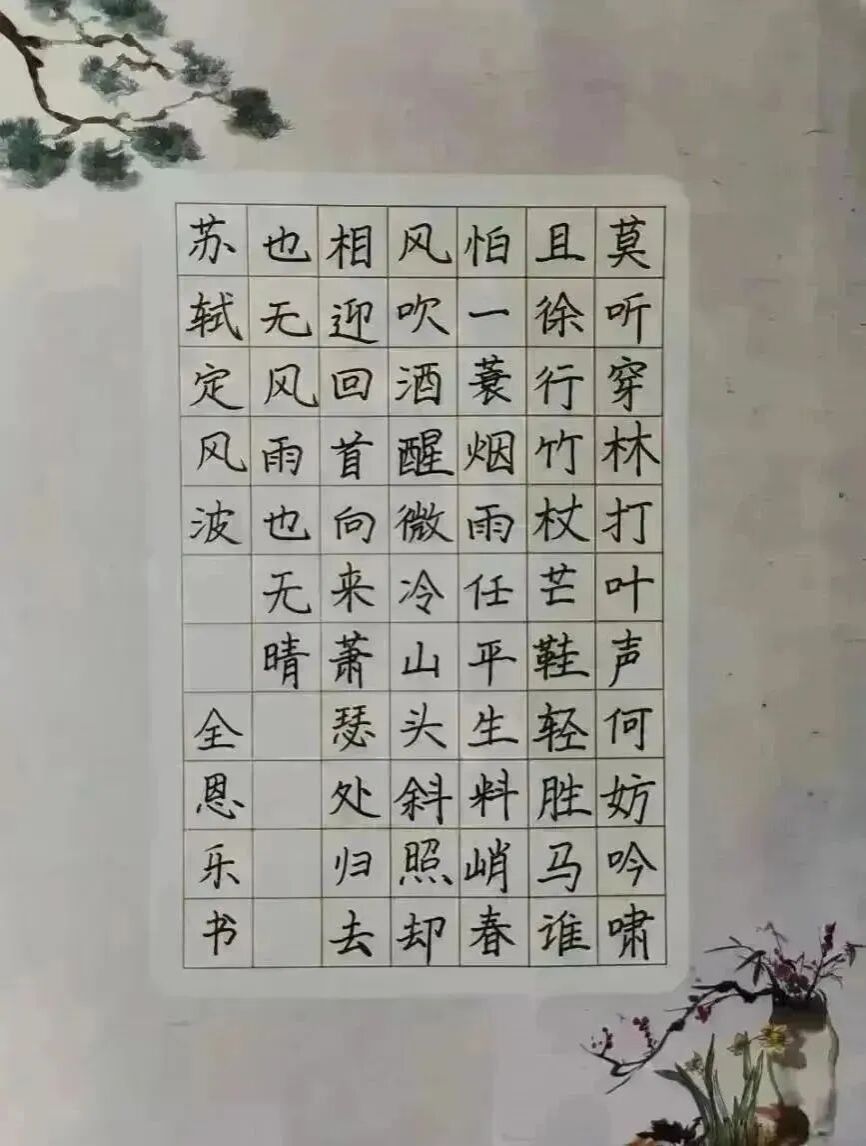 莫听穿林打叶声何妨吟啸
且徐行竹杖芒鞋轻胜马谁
怕一蓑烟雨任平生料峭春
风吹酒醒微冷山头斜照却
相迎回首向来萧瑟处归去
也无风雨也无晴
苏轼定风波 全恩乐书